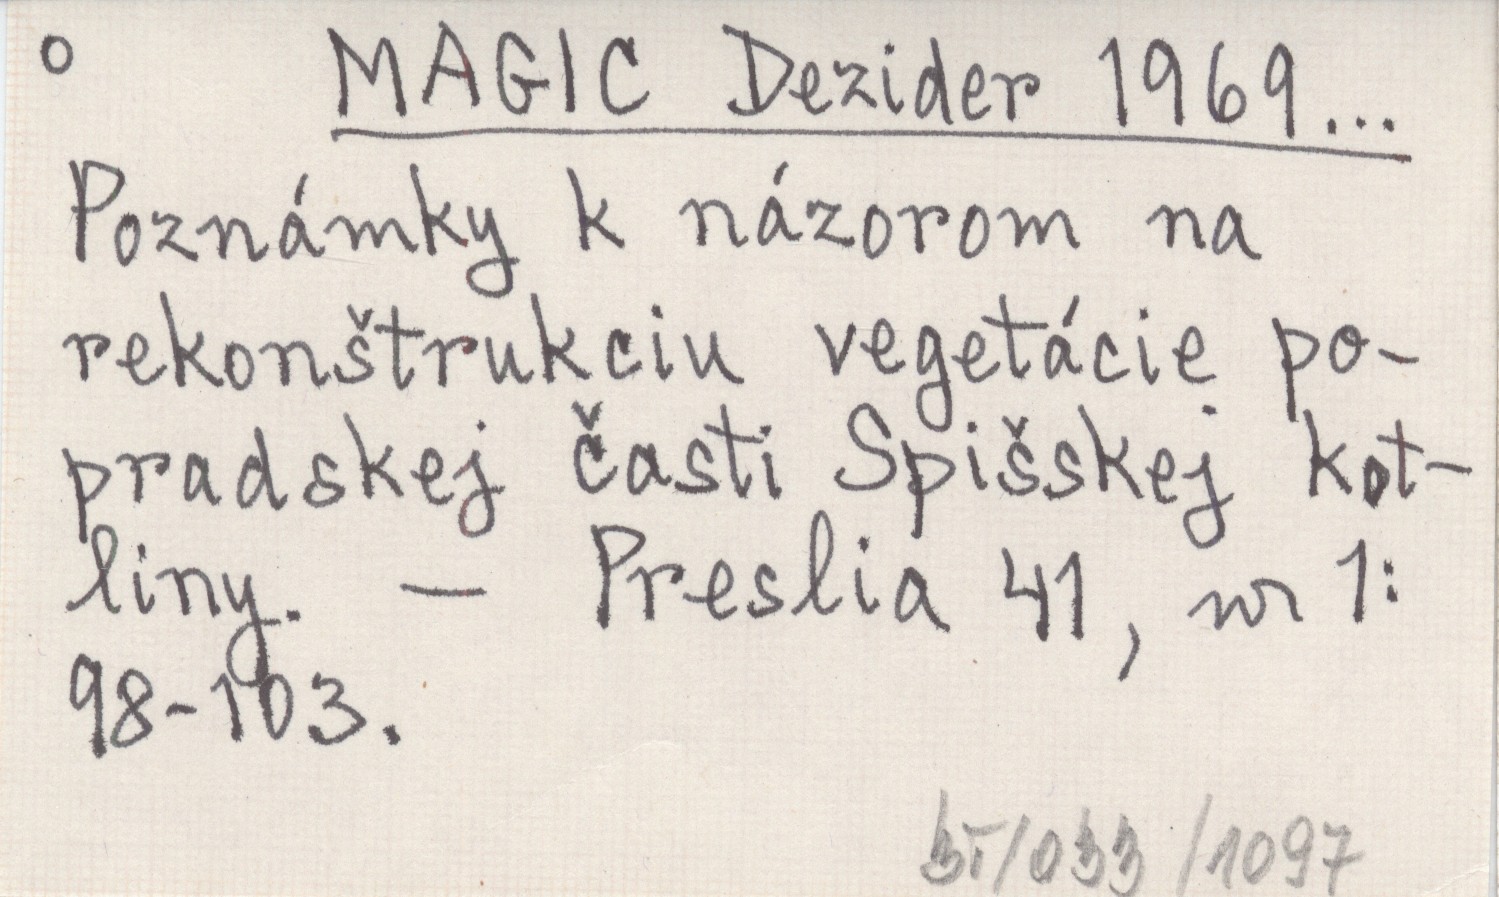 o MAGIC Dezider 1969...
Poznámky k názorom na
rekonštrukciu vegetácie po-
pradskej časti Spišskej kot-
liny. — Preslia 41, nr 1:
98-103.
/033/1097